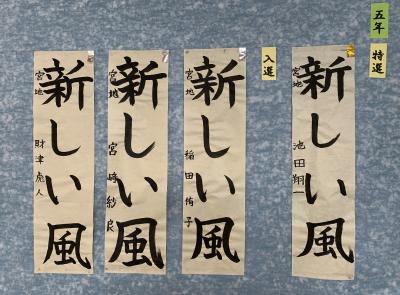 五年
特選
新しい風
宮地
池田翔一
入選
新しい風
宮地
稲田侑子
新しい風
宮地
宮崎紗良
新しい風
宮地
財津虎人